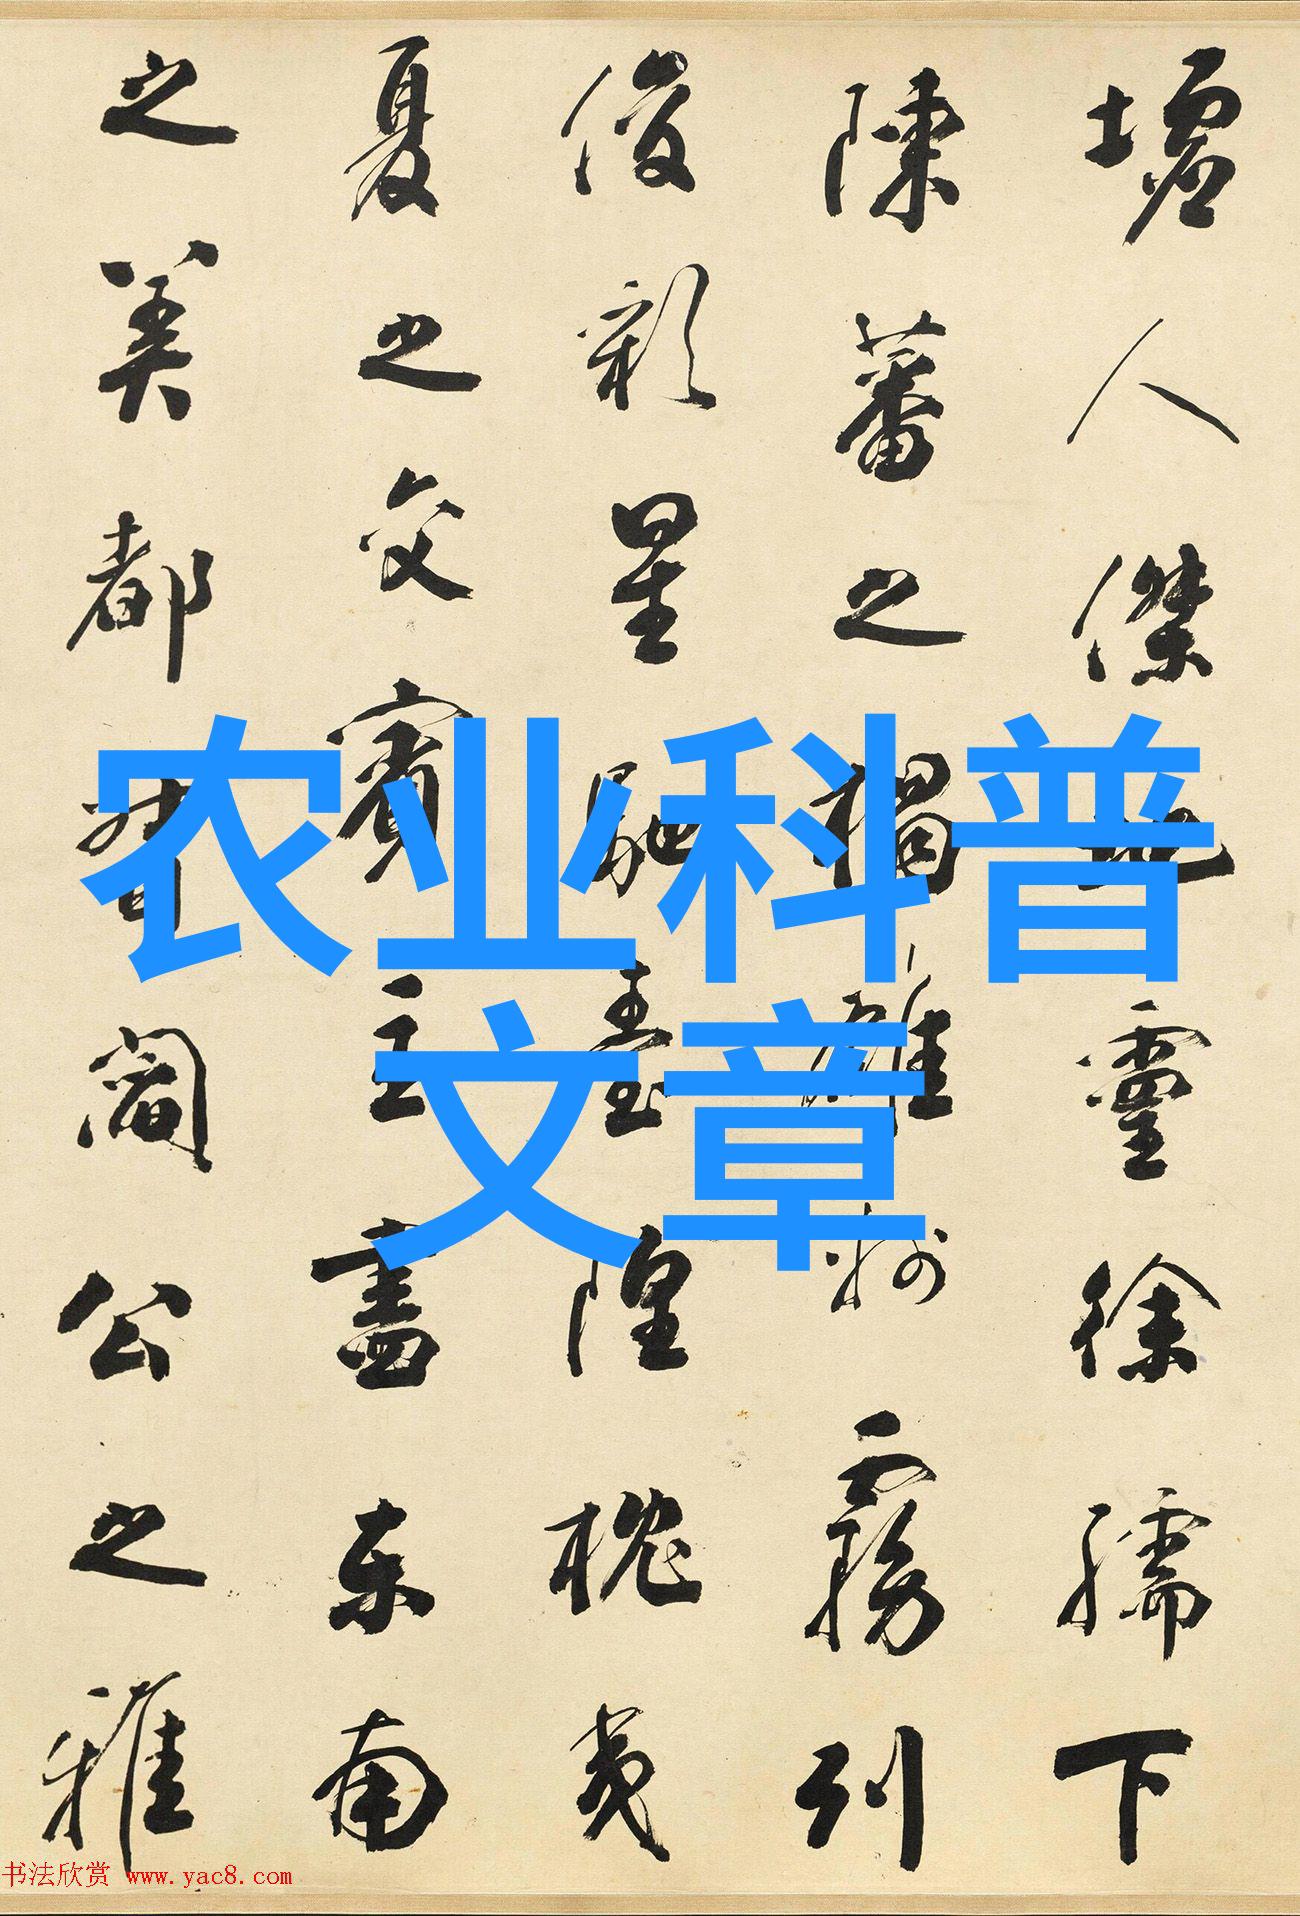 墟人傑地靈徐孺下
陳蕃之榻雄州霧列
俊彩星馳臺隍枕夷
夏之交賓主盡東南
之美都督閻公之雅
农业科普
文章
书法欣赏 www.yac8.com